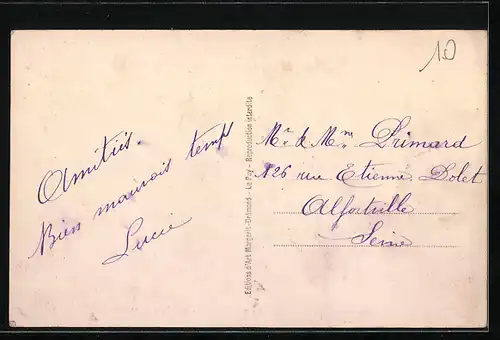 10
Amitiés.
Bien mauvais temps
Lucie
Editions d'Art Margerit-Brémond - Le Puy - Reproduction interdite
Mr & Mme Primard
126 rue Etienne Dolet
Alfortville
Seine